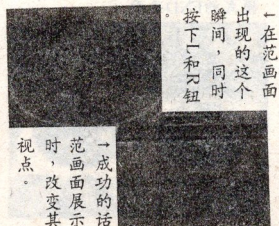 ←在范画面
出现的这个
瞬间，同时
按下L和R钮
。
→成功的话
范画面展示
时，改变其
视点。